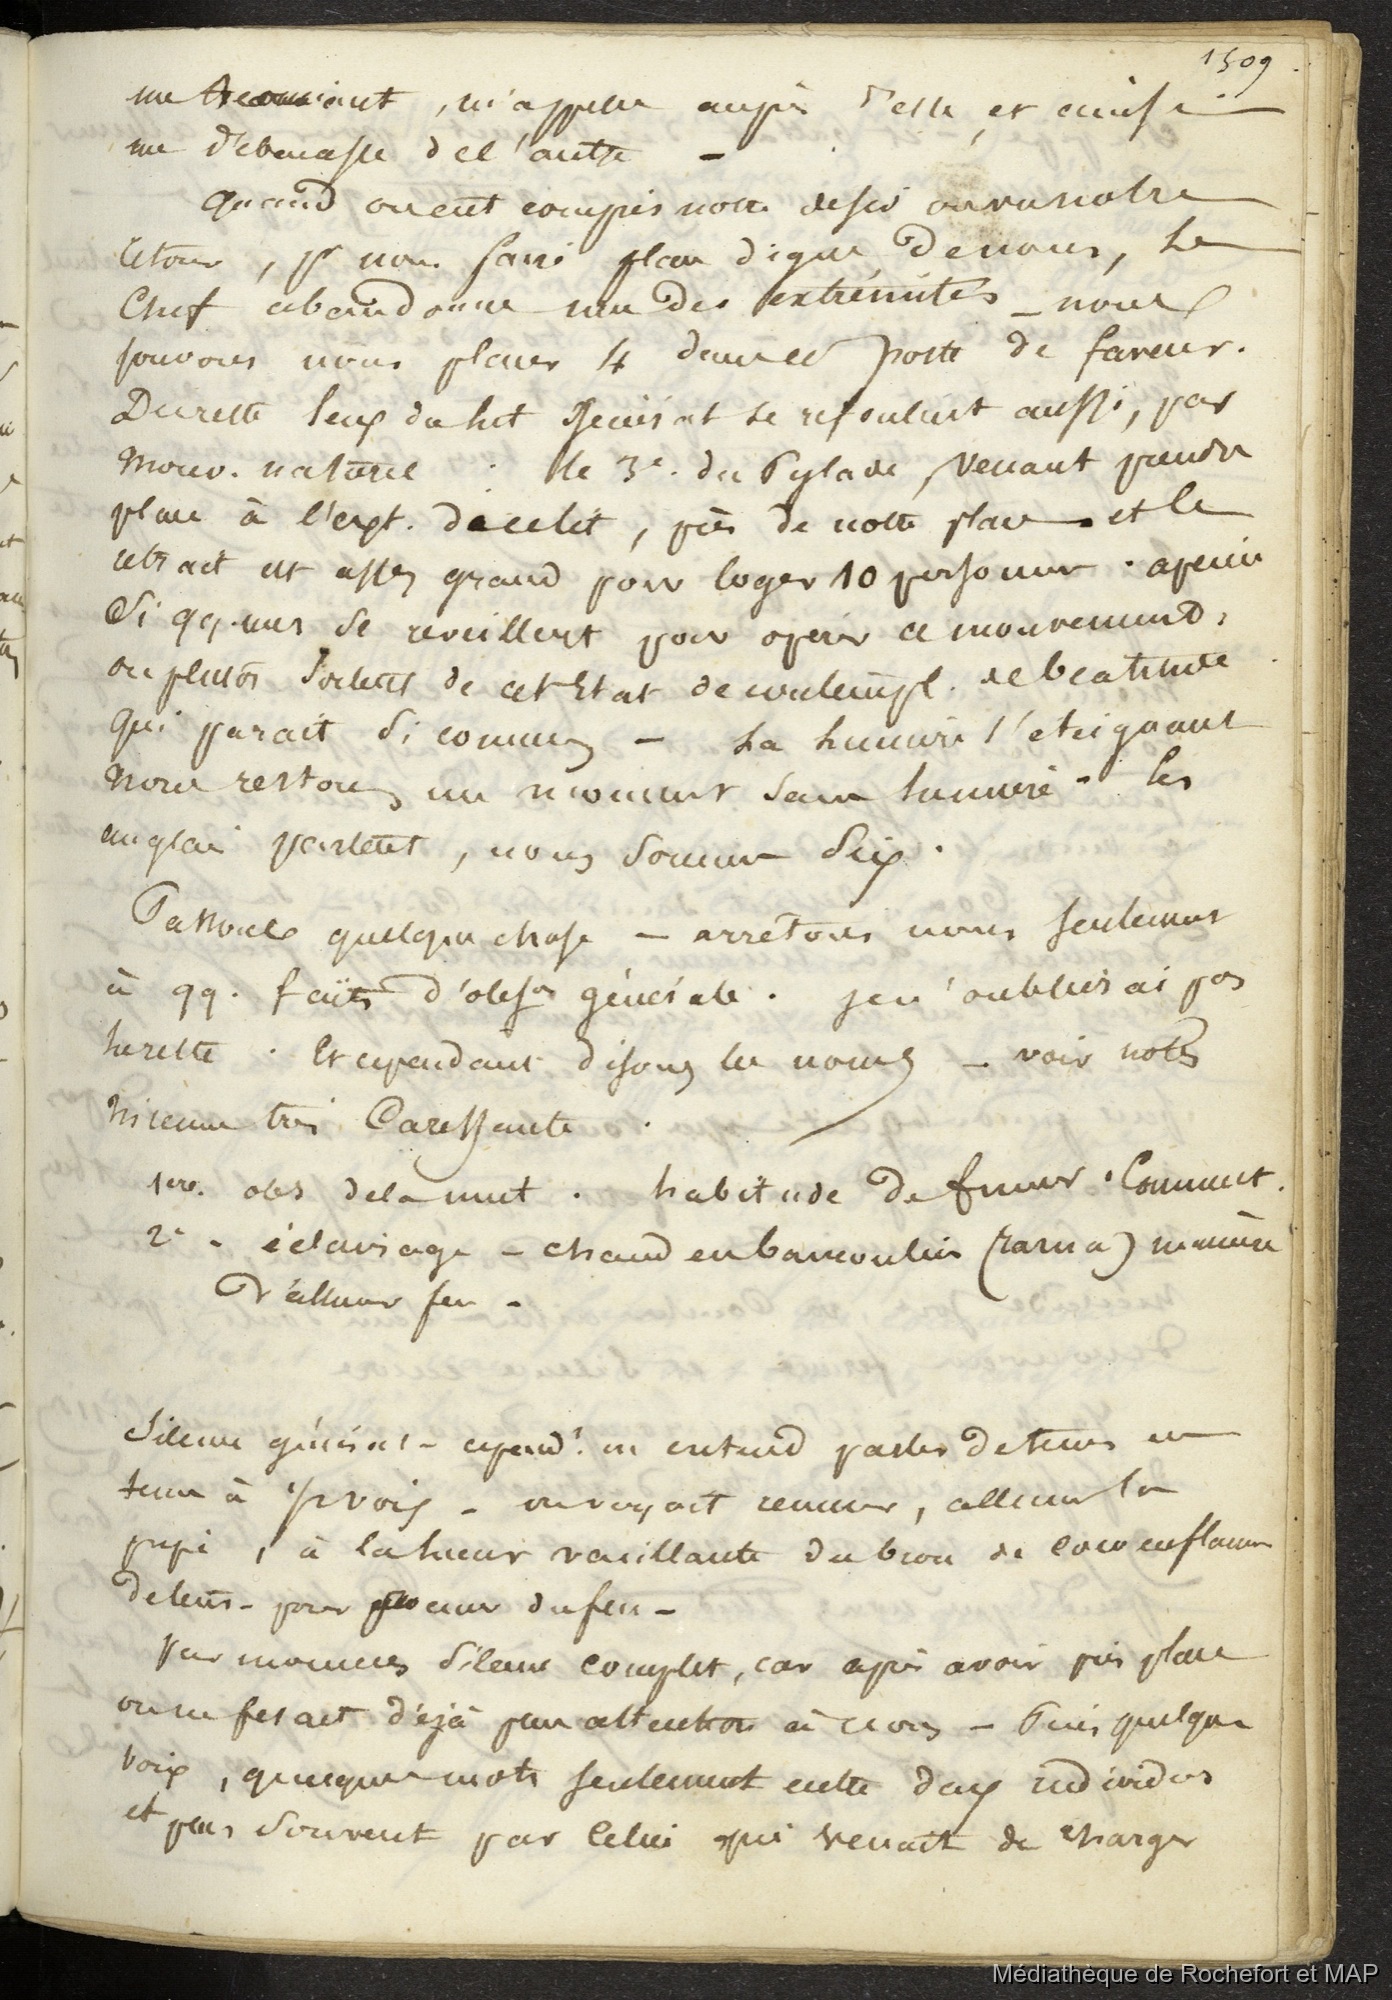 1509
me , m'appelle auprès d'elle, et ainsi
me débarasse de l'autre -
quand on eut compris notre desir on va notre
retour, pr nous faire place digne de nous, le
Chef abandonne une des extrémités - nous
pouvons nous placer 4 dans ce poste de faveur.
Du reste ceux du lit se refoulent aussi, par
mouv. naturel : le 3e. du Pylade, venant prendre
place à l'ext. de ce lit, près de notre place et le
est assez grand pour loger 10 personnes . à peine
si qq. uns se reveillent pour opérer ce mouvement,
ou plutôt sortent de cet Etat de contempl. de beatitude
qui parait si connu - La lumière s'éteignant
nous restons un moment sans lumière - les
anglais parlent, nous sommes Six .
Passons quelque chose - arrêtons nous seulement
à qq. faits d'obson générale . je n'oublierai pas
le reste . Et cependant disons le nous - voir notes
très Caressante .
1ere. obs de la nuit . habitude de fumer . Comment.
2e - éclairage - chaud en (rama) manière
d'allumer feu -
Silence général - cepend.t on entend parler de tems en
tems à voix - on voyait remuer, allumer la
pipe, à la lueur vacillante du brou de coco enflammé
de leurs - pour du feu -
par moments silence complet, car après avoir pris place
on ne fesait déjà plus attention à nous - Puis quelque
voix, quelques mots seulement entre deux individus
et plus souvent par celui qui venait de charger
Médiathèque de Rochefort et MAP